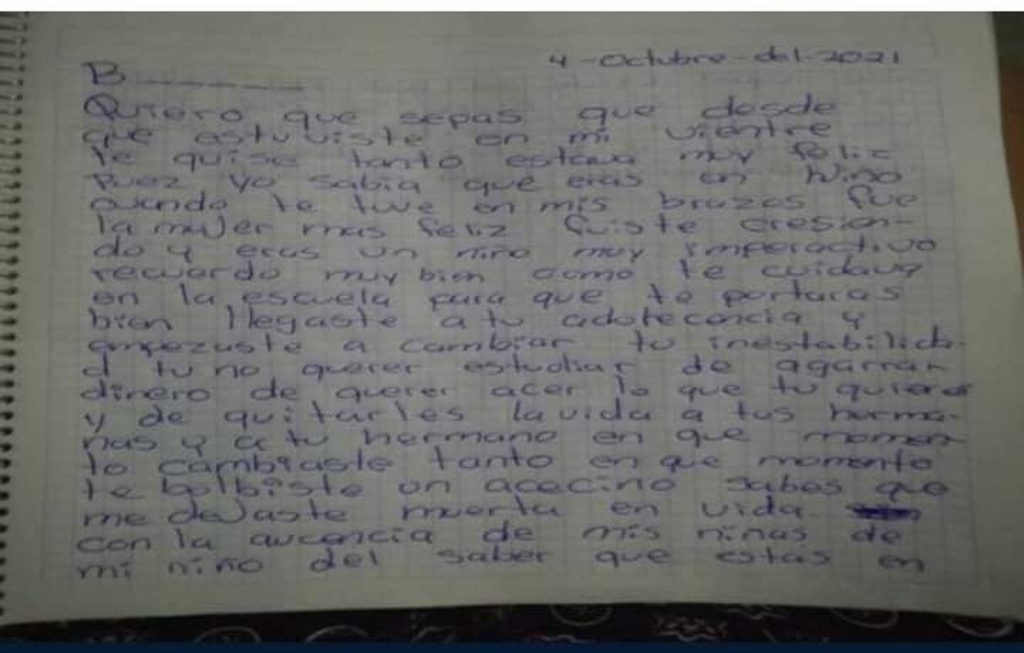 4-Octubre-del-2021
B
Quiero que sepas que desde
que estuviste en mi vientre
te quise tanto estava muy feliz
Puez yo sabia que eras un Niño
cuando te tuve en mis brazos fue
la mujer mas feliz fuiste cresien-
do y eras un niño muy imperactivo
recuerdo muy bien como te cuidava
en la escuela para que te portaras
bien llegaste a tu adolecencia y
empezaste a cambiar tu inestabilida
d tu no querer estudiar de agarrar
dinero de querer acer lo que tu quieres
y de quitarles la vida a tus herma-
nas y a tu hermano en que momen
to cambiaste tanto en que momento
te bolbiste un acecino sabes que
me dejaste muerta en vida
con la aucencia de mis niñas de
mi niño del saber que estas en